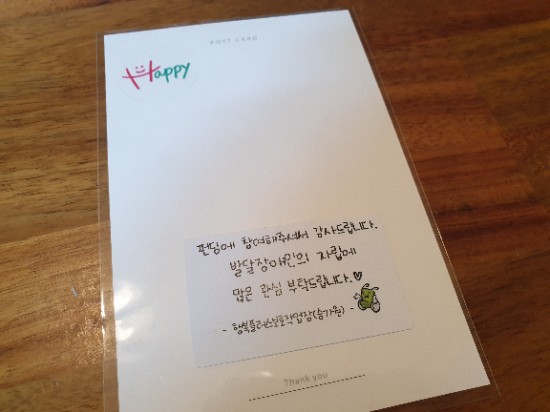 POST CARD
Happy
펀딩에 참여해주셔서 감사드립니다.
발달장애인의 자립에
많은 관심 부탁드립니다.♡
- 행복플러스보호작업장(숨가원) -
Thank you